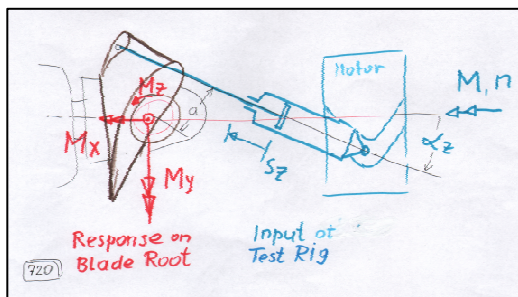 Motor
Mz
a
M, n
Mx
αz
My
sz
Response on
Blade Root
Input of
Test Rig
720